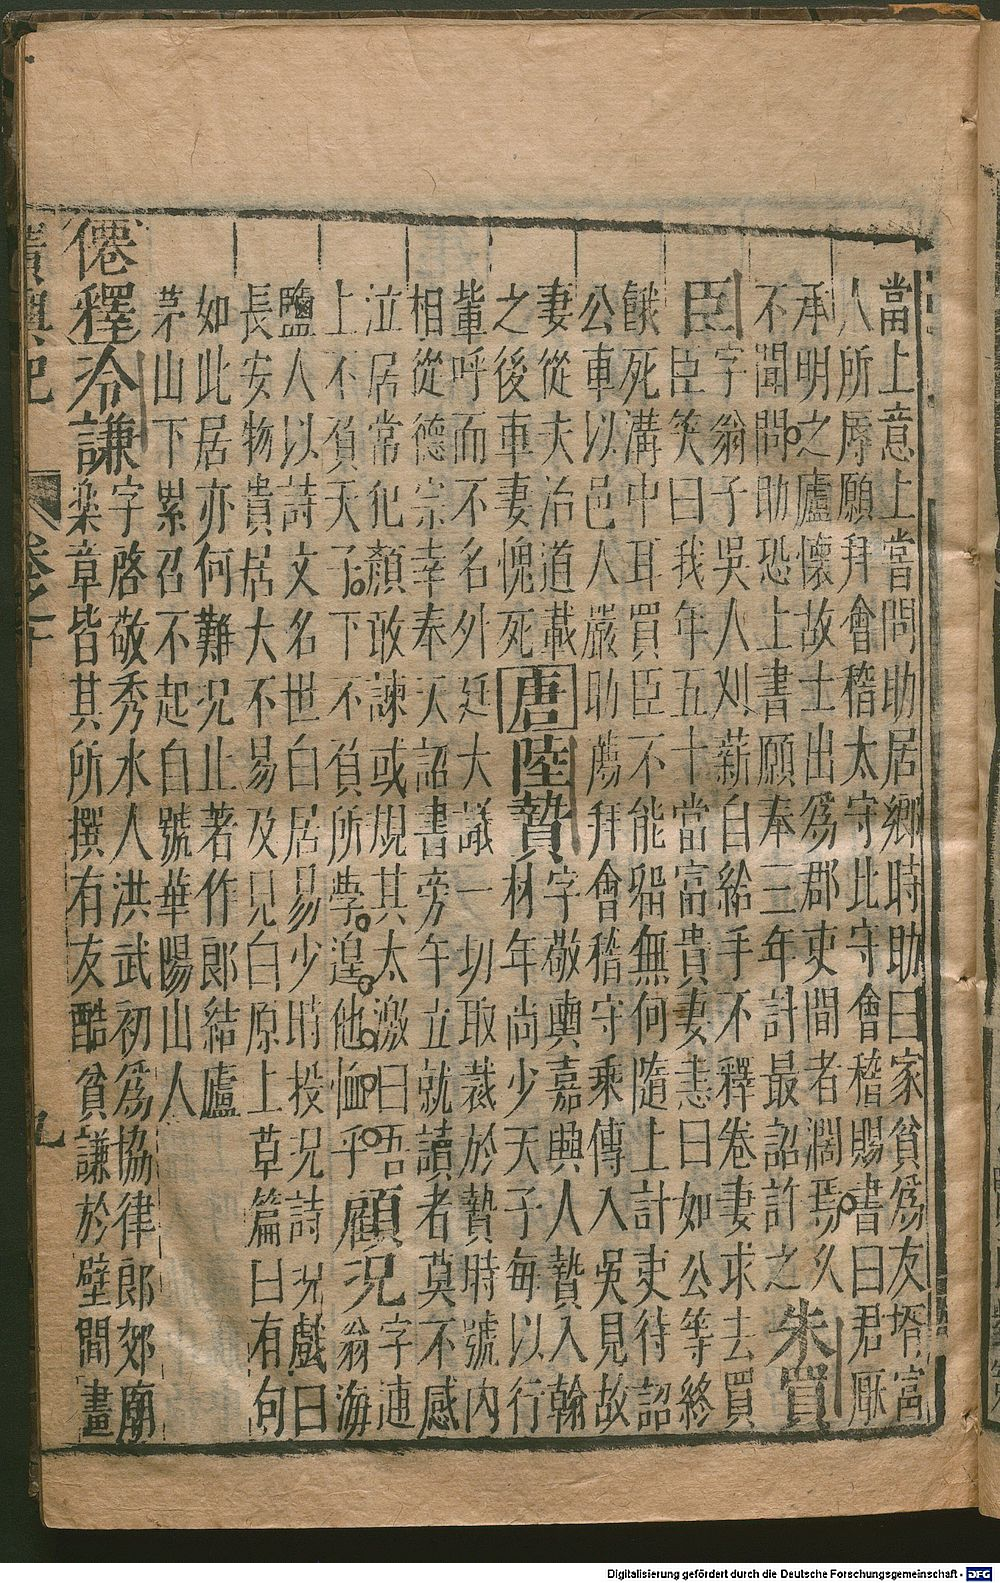 當上意上嘗問助居鄉時助曰家貧爲友壻富
人所辱願拜會稽太守此守會稽賜書曰君厭
承明之廬懷故土出爲郡吏間者濶焉久
不聞問助恐上書願奉三年計最詔許之朱買
臣字翁子吳人刈薪自給手不釋卷妻求去買
臣笑曰我年五十當富貴妻恚曰如公等終
餓死溝中耳買臣不能留無何隨上計吏待詔
公車以邑人嚴助薦拜會稽守乘傳入吳見故
妻從夫治道載
之後車妻愧死唐陸贄字敬輿嘉興人贄入翰
林年尚少天子每以行
輩呼而不名外廷大議一切取裁於贄時號內
相從德宗幸奉天詔書旁午立就讀者莫不感
泣居常犯顏敢諫或規其太激曰吾
上不負天子下不負所學遑他恤乎顧況字逋
翁海
鹽人以詩文名世白居易少時投況詩況戲曰
長安物貴居大不易及見白原上草篇曰有句
如此居亦何難況止著作郎結廬
茅山下累召不起自號華陽山人
僊釋冷謙字啓敬秀水人洪武初爲協律郎郊廟
樂章皆其所撰有友酷貧謙於壁間畫
廣輿記 卷之十 九
Digitalisierung gefördert durch die Deutsche Forschungsgemeinschaft - DFG